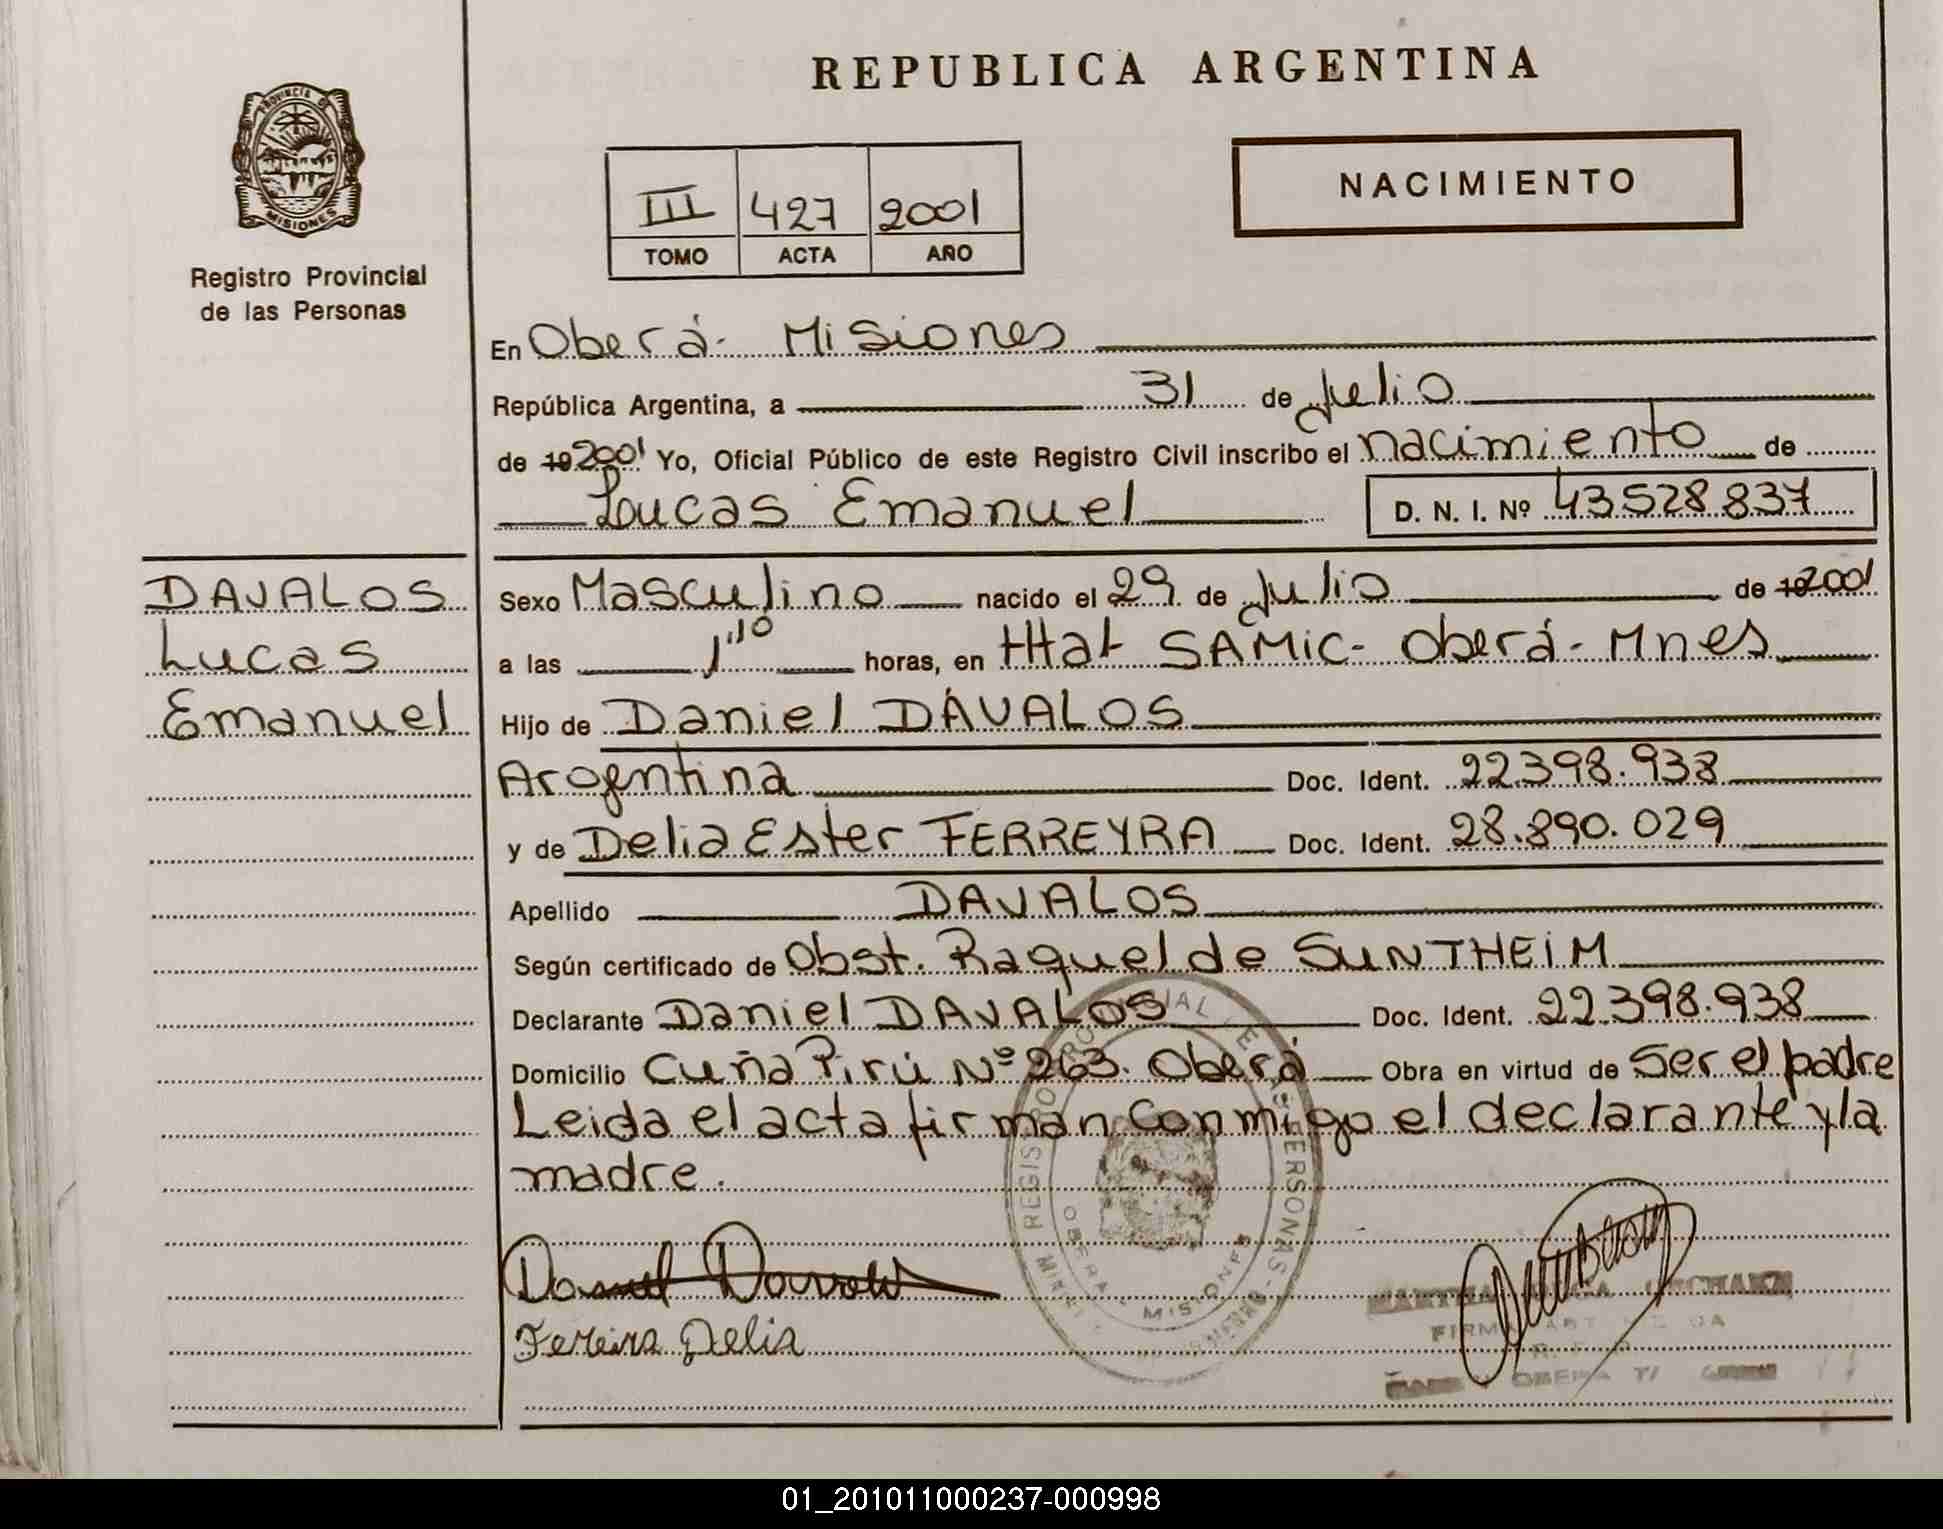 REPUBLICA ARGENTINA
PROVINCIA DE
MISIONES
Registro Provincial
de las Personas
III 427 2001
TOMO ACTA AÑO
NACIMIENTO
En Oberá - Misiones
República Argentina, a 31 de Julio
de 19 2001 Yo, Oficial Público de este Registro Civil inscribo el nacimiento de
Lucas Emanuel D. N. I. Nº 43528837
DAVALOS
Lucas
Emanuel
Sexo Masculino nacido el 29 de Julio de 19 2001
a las 1'10 horas, en Htal SAMIC - Oberá - Mnes
Hijo de Daniel DÁVALOS
Argentina Doc. Ident. 22.398.938
y de Delia Ester FERREYRA Doc. Ident. 28.890.029
Apellido DAVALOS
Según certificado de Obst. Raquel de SUNTHEIM
Declarante Daniel DAVALOS Doc. Ident. 22.398.938
Domicilio Cuña Pirú Nº 263. Oberá Obra en virtud de Ser el padre
Leida el acta firman conmigo el declarante y la
madre.
Fereira Delia
OBERA - MISIONES
01_201011000237-000998